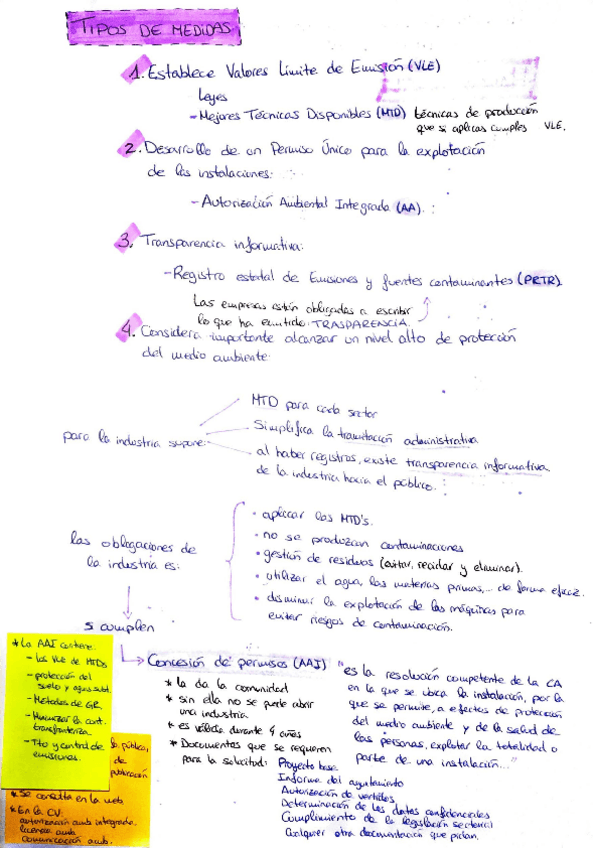 TIPOS DE MEDIDAS
1. Establece Valores Límite de Emisión (VLE)
Leyes
- Mejores Técnicas Disponibles (MTD) técnicas de producción
que si aplicas cumples VLE.
2. Desarrollo de un Permiso Único para la explotación
de las instalaciones:
- Autorización Ambiental Integrada (AA).
3. Transparencia informativa:
- Registro estatal de Emisiones y fuentes contaminantes (PRTR)
Las empresas están obligadas a escribir
lo que ha emitido: TRASPARENCIA.
4. Considera importante alcanzar un nivel alto de protección
del medio ambiente:
para la industria supone:
MTD para cada sector
Simplifica la tramitación administrativa
al haber registros, existe transparencia informativa
de la industria hacia el público.
las obligaciones de
la industria es:
• aplicar las MTD's.
• no se produzcan contaminaciones
• gestión de residuos (evitar, reciclar y eliminar).
• utilizar el agua, las materias primas,... de forma eficaz.
• disminuir la explotación de las máquinas para
evitar riesgos de contaminación.
s cumplen
Concesión de permisos (AAI)
* la da la comunidad
* sin ella no se puede abrir
una industria
* es válida durante 4 años
* Documentos que se requieren
para la solicitud:
Proyecto base
Informe del ayuntamiento
Autorización de vertidos
Determinación de los datos confidenciales
Cumplimiento de la legislación sectorial
Cualquier otra documentación que pidan.
"es la resolución competente de la CA
en la que se ubica la instalación, por la
que se permite, a efectos de protección
del medio ambiente y de la salud de
las personas, explotar la totalidad o
parte de una instalación..."
* La AAI contiene:
- los VLE de MTDs
- protección del
suelo y aguas subt.
- Métodos de GR.
- Minimizar la cont.
transfronteriza
- Tto y control de
emisiones.
la pública,
de
publicación
* Se consulta en la web
* En la CV:
autorización amb integrada.
licencia amb.
Comunicación amb.